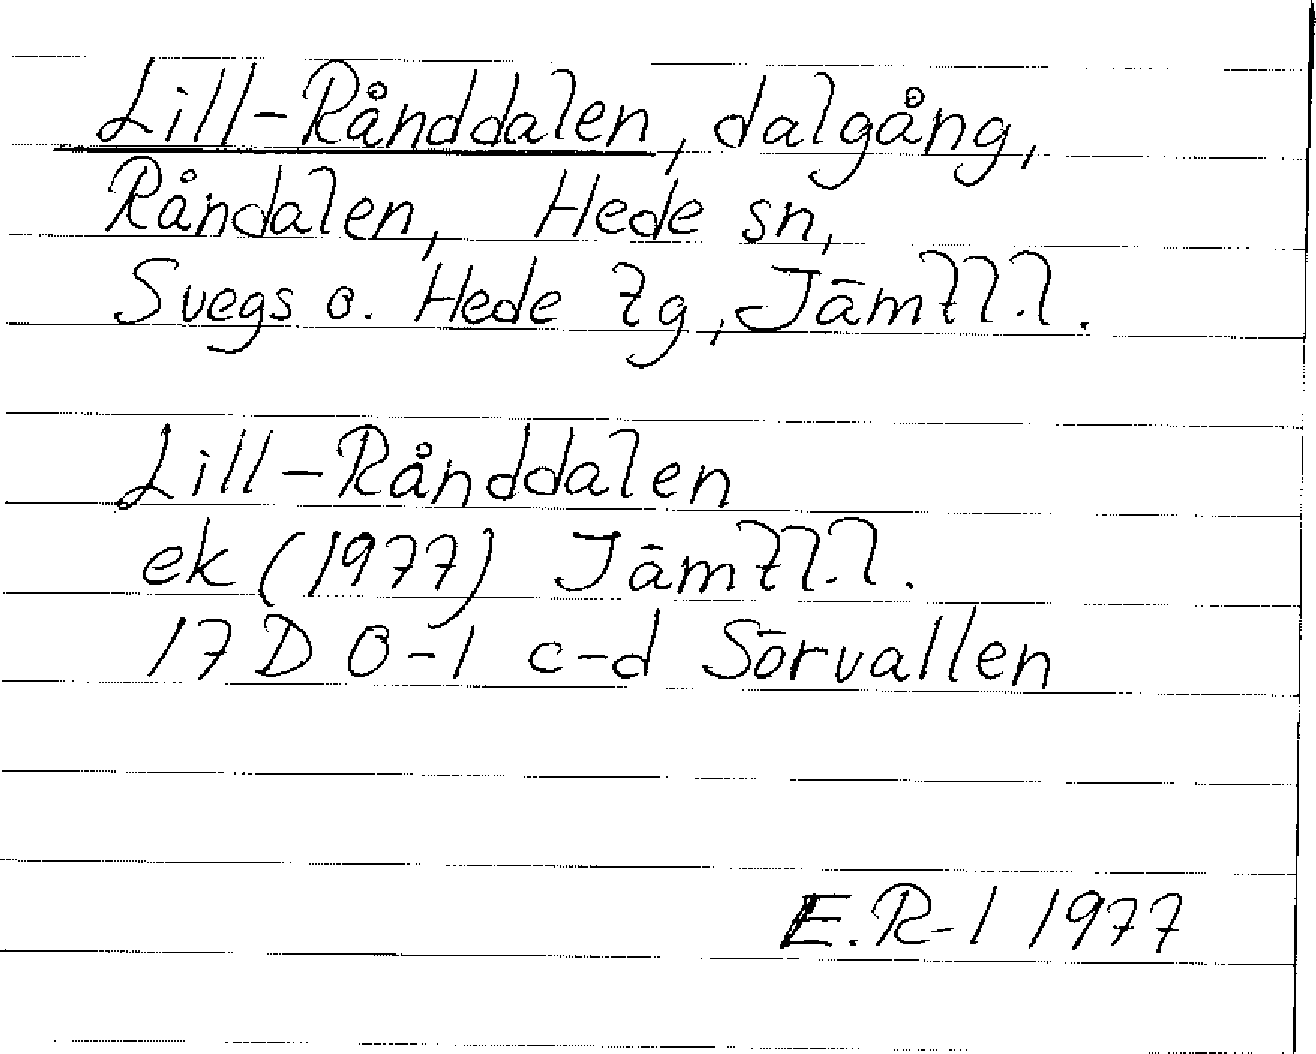 Lill-Rånddalen, dalgång,
Råndalen, Hede sn,
Svegs o. Hede tg, Jämtl.l.
Lill-Rånddalen
ek (1977) Jämtl.l.
17 D 0-1 c-d Sörvallen
E.R-l 1977